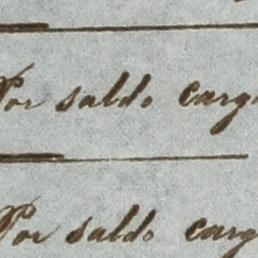 Por saldo carg
Por saldo carg